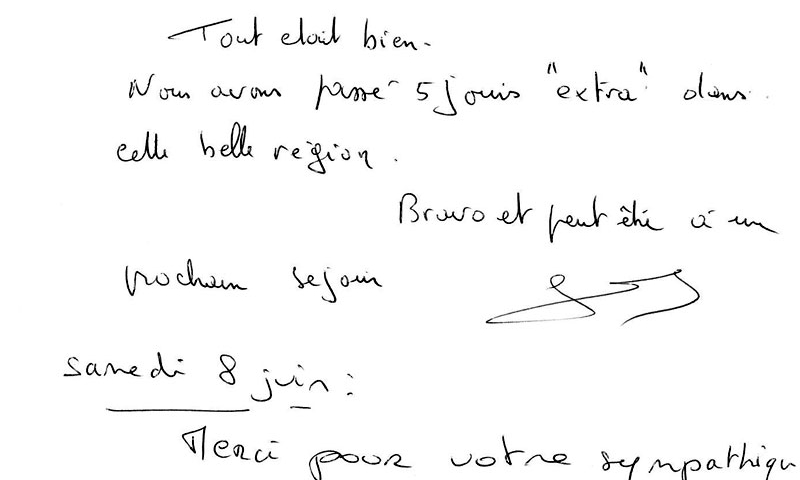 Tout etait bien.
Nous avons passé 5 jours "extra" dans
cette belle région.
Bravo et peut être à un
prochain sejour
samedi 8 juin :
Merci pour votre sympathiqu